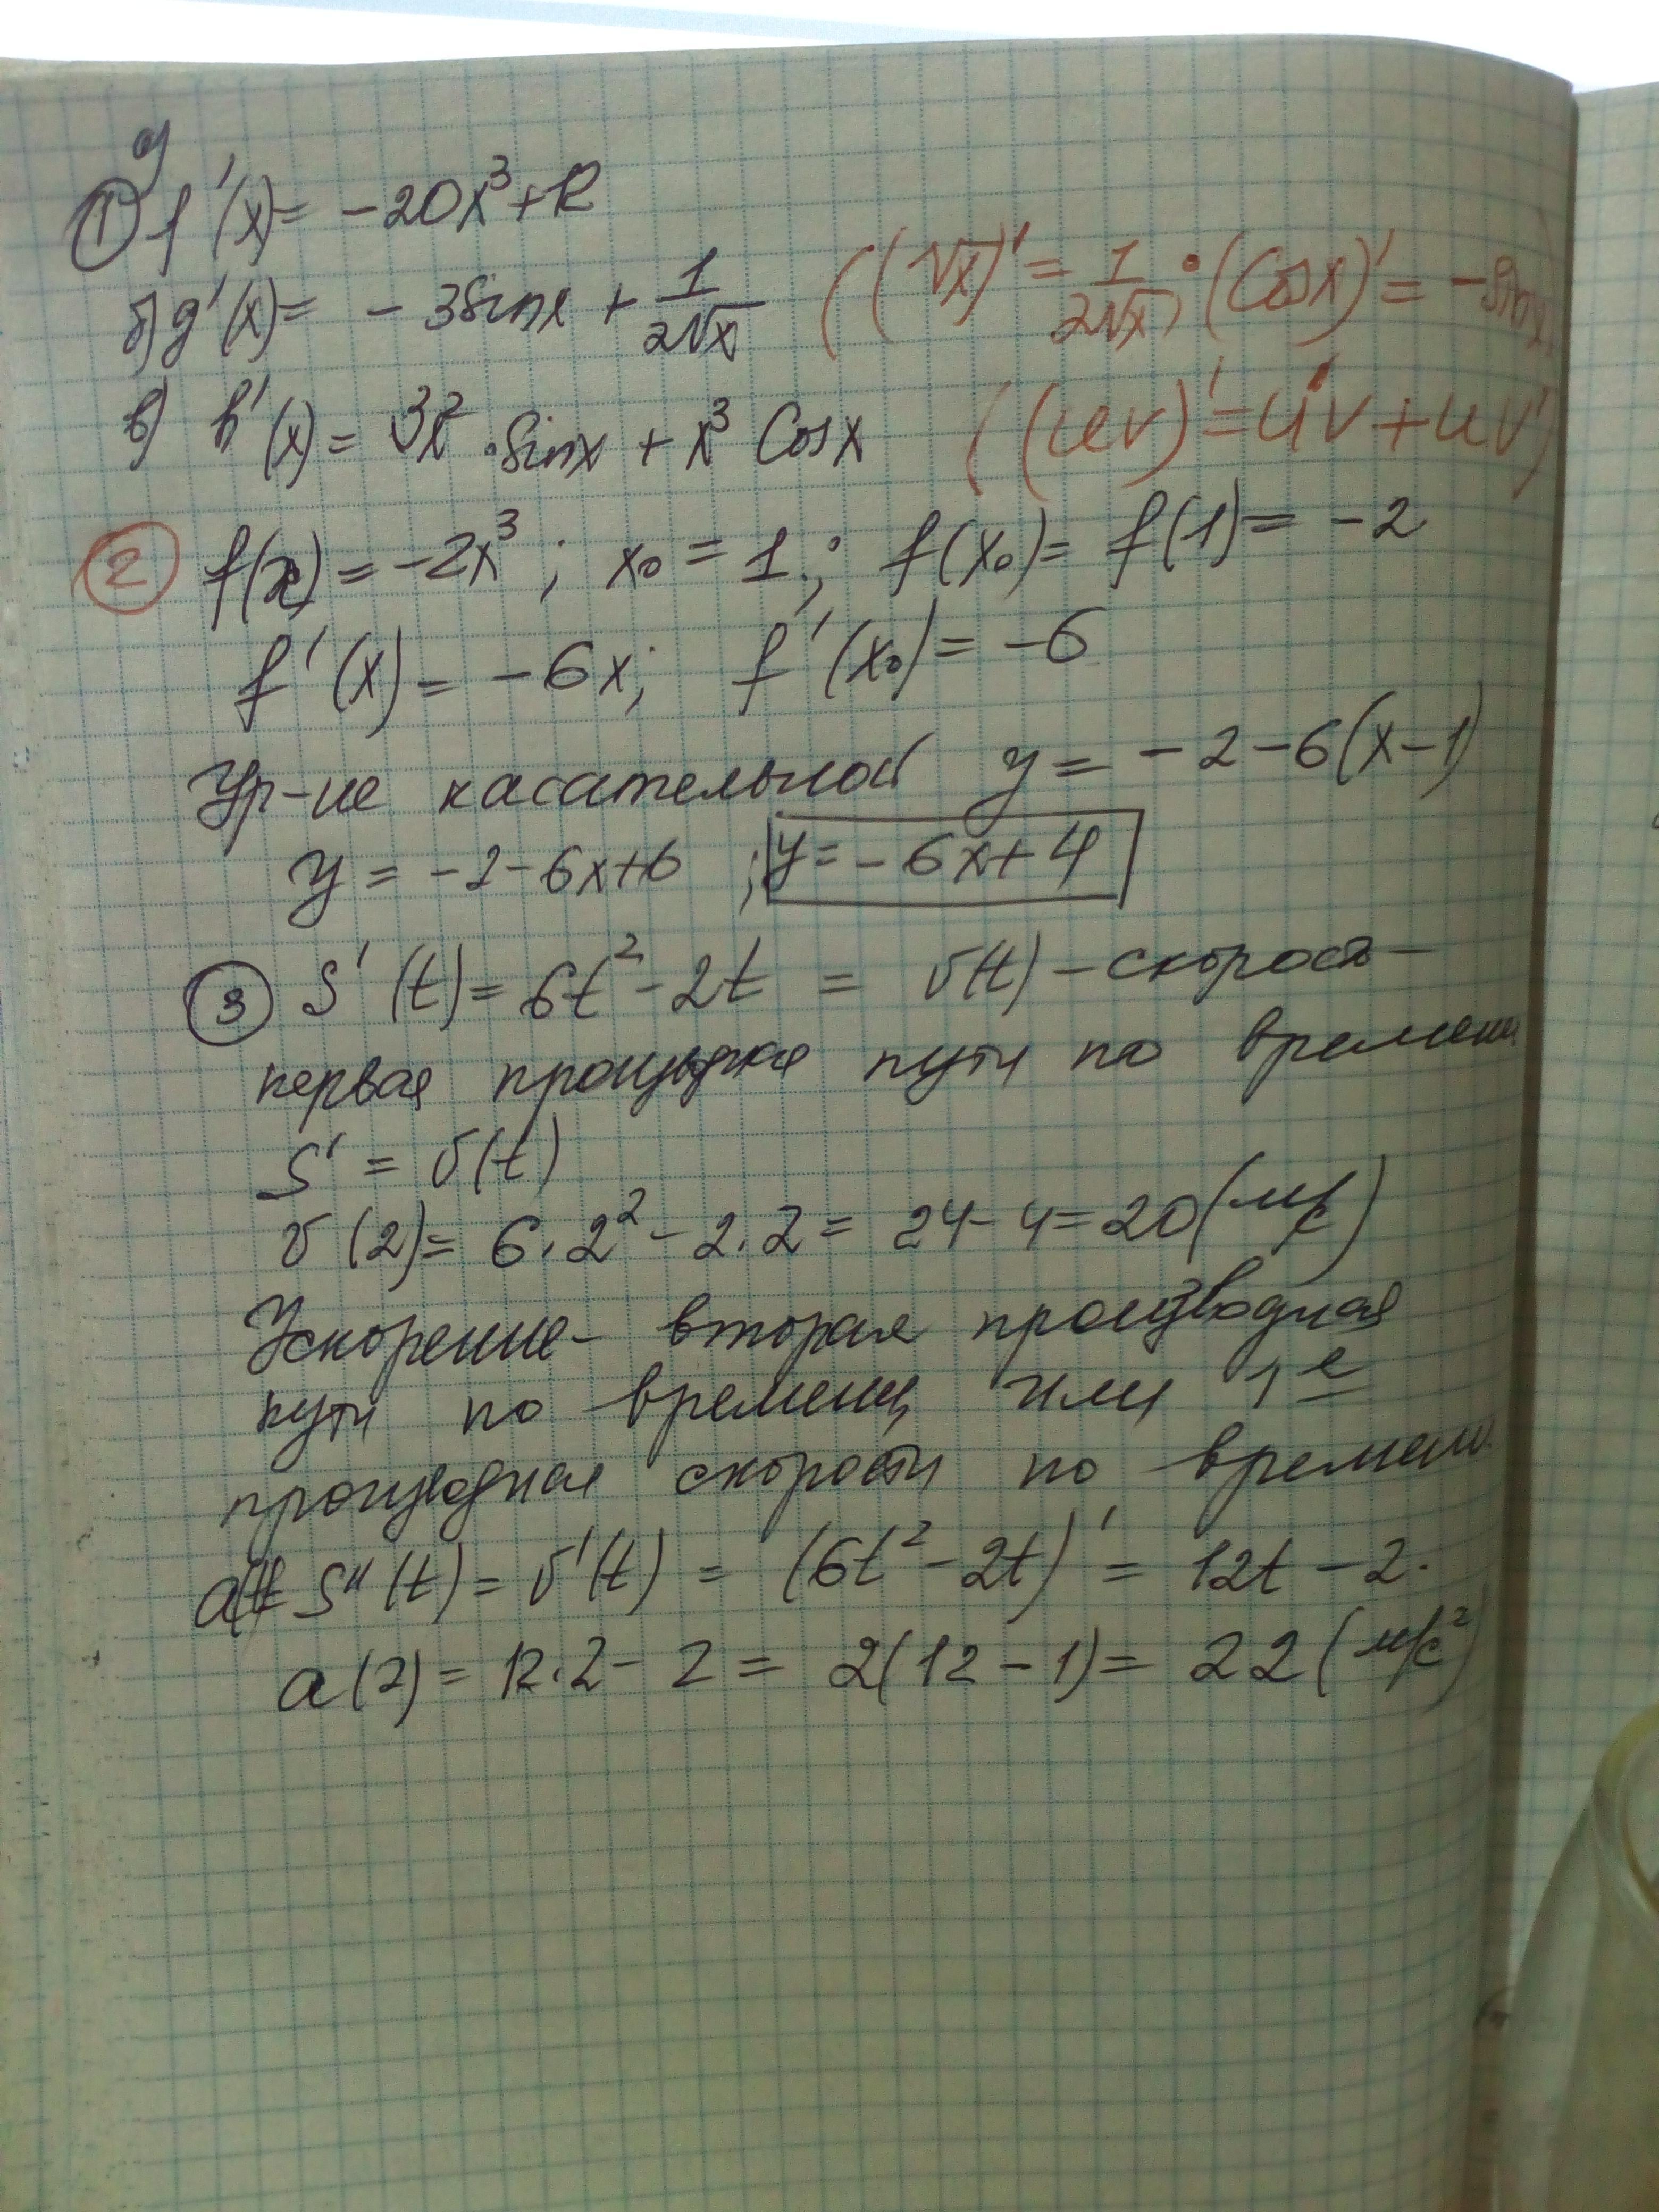 а)
① f'(x) = -20x³ + 12
б) g'(x) = - 3sinx + 1/(2√x) ((√x)' = 1/(2√x); (Cosx)' = -sinx)
в) h'(x) = 3x² · sinx + x³ Cosx ((uv)' = u'v + uv')
② f(x) = -2x³ ; x₀ = 1 ; f(x₀) = f(1) = -2
f'(x) = -6x; f'(x₀) = -6
Ур-ие касательной y = -2 - 6(x-1)
y = -2-6x+6 ; y = -6x+4
③ S'(t) = 6t² - 2t = v(t) - скорость -
первая производная пути по времени
S' = v(t)
v(2) = 6·2² - 2·2 = 24 - 4 = 20 (м/с)
Ускорение - вторая производная
пути по времени, или 1е
производная скорости по времени
a(t) = S''(t) = v'(t) = (6t² - 2t)' = 12t - 2.
a(2) = 12·2 - 2 = 2(12 - 1) = 22 (м/с²)